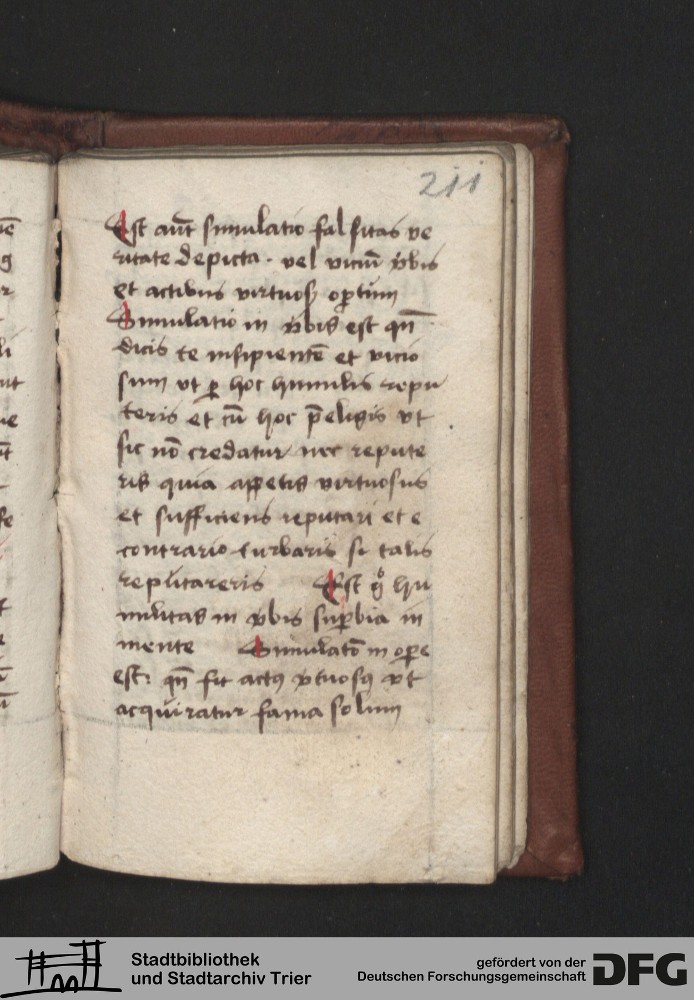 211
Est aūt simulatio falsitas ve
ritate depicta · vel viciū v̄bis
et actibus virtuosꝫ op̄tum
Simulatio in v̄bis est qn̄
dicis te insipientē et vicio
sum vt ꝑ hoc humilis repu
teris et cū hoc p̄eligis vt
sic nō credatur nec repute
ris quia appetis virtuosus
et sufficiens reputari et e
contrario turbaris si talis
reputareris Est gͦ hu
militas in v̄bis suꝑbia in
mente Simulatō in oꝑe
est: qn̄ fit actꝰ v̄tuosꝰ vt
acquiratur fama solum
Stadtbibliothek
und Stadtarchiv Trier
gefördert von der
Deutschen Forschungsgemeinschaft
DFG